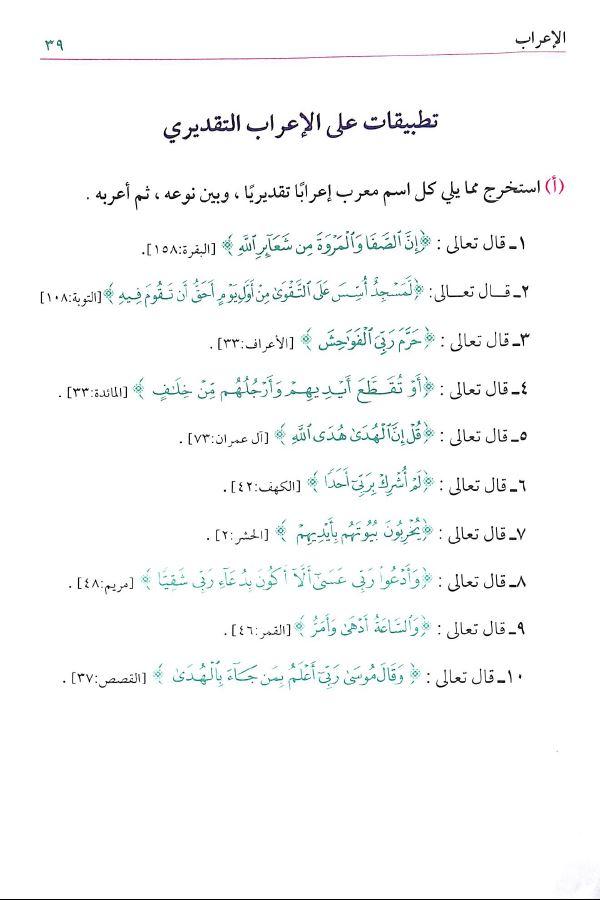 الإعراب
٣٩
تطبيقات على الإعراب التقديري
(أ) استخرج مما يلي كل اسم معرب إعرابًا تقديريًا ، وبين نوعه ، ثم أعربه .
١ـ قال تعالى : ﴿إِنَّ الصَّفَا وَالْمَرْوَةَ مِن شَعَآئِرِ اللَّهِ﴾ [البقرة:١٥٨].
٢ـ قـــال تعـــالى: ﴿لَّمَسْجِدٌ أُسِّسَ عَلَى التَّقْوَىٰ مِنْ أَوَّلِ يَوْمٍ أَحَقُّ أَن تَقُومَ فِيهِ﴾ [التوبة:١٠٨]
٣ـ قال تعالى : ﴿حَرَّمَ رَبِّيَ الْفَوَاحِشَ﴾ [الأعراف:٣٣] .
٤ـ قال تعالى : ﴿أَوْ تُقَطَّعَ أَيْدِيهِمْ وَأَرْجُلُهُم مِّنْ خِلَٰفٍ﴾ [المائدة:٣٣] .
٥ـ قال تعالى : ﴿قُلْ إِنَّ الْهُدَىٰ هُدَى اللَّهِ﴾ [آل عمران:٧٣] .
٦ـ قال تعالى : ﴿لَمْ أُشْرِكْ بِرَبِّىٓ أَحَدًا﴾ [الكهف:٤٢] .
٧ـ قال تعالى : ﴿يُخْرِبُونَ بُيُوتَهُم بِأَيْدِيهِمْ﴾ [الحشر:٢] .
٨ـ قال تعالى : ﴿وَأَدْعُوا۟ رَبِّى عَسَىٰٓ أَلَّآ أَكُونَ بِدُعَآءِ رَبِّى شَقِيًّا﴾ [مريم:٤٨] .
٩ـ قال تعالى : ﴿وَالسَّاعَةُ أَدْهَىٰ وَأَمَرُّ﴾ [القمر:٤٦] .
١٠ـ قال تعالى : ﴿وَقَالَ مُوسَىٰ رَبِّىٓ أَعْلَمُ بِمَن جَآءَ بِالْهُدَىٰ﴾ [القصص:٣٧] .